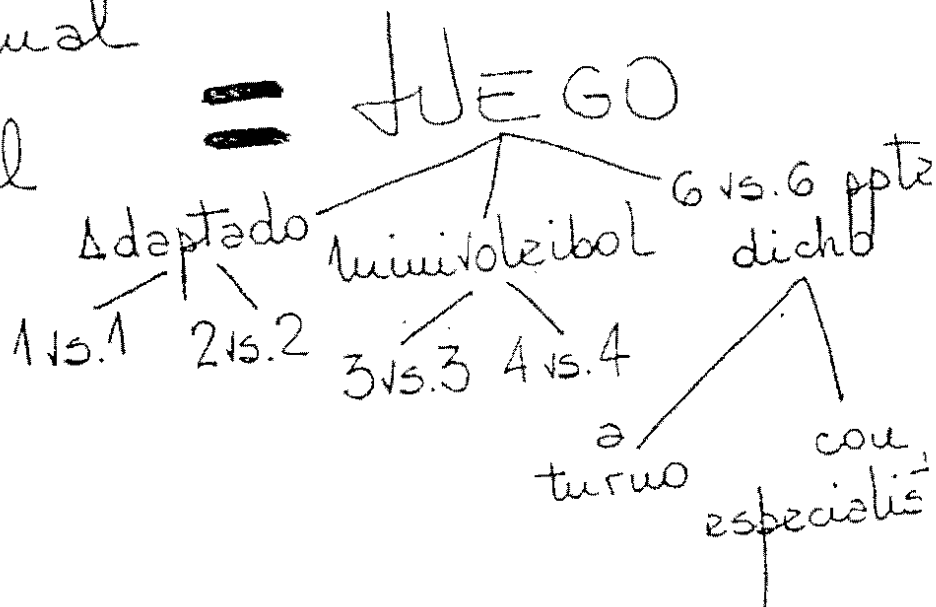 = JUEGO
Adaptado minivoleibol 6 vs. 6 ppte
dicho
1 vs. 1 2 vs. 2 3 vs. 3 4 vs. 4
a
turno
con
especialis